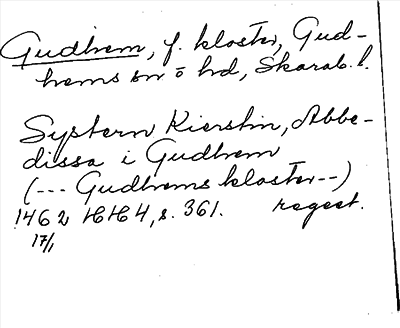 Gudhem, f. kloster, Gud-
hems sn o hd, Skarab. l.
Systern Kierstin, Abbe-
dissa i Gudhem
(--- Gudhems kloster--)
1462 HH 4, s. 361. regest.
17/1